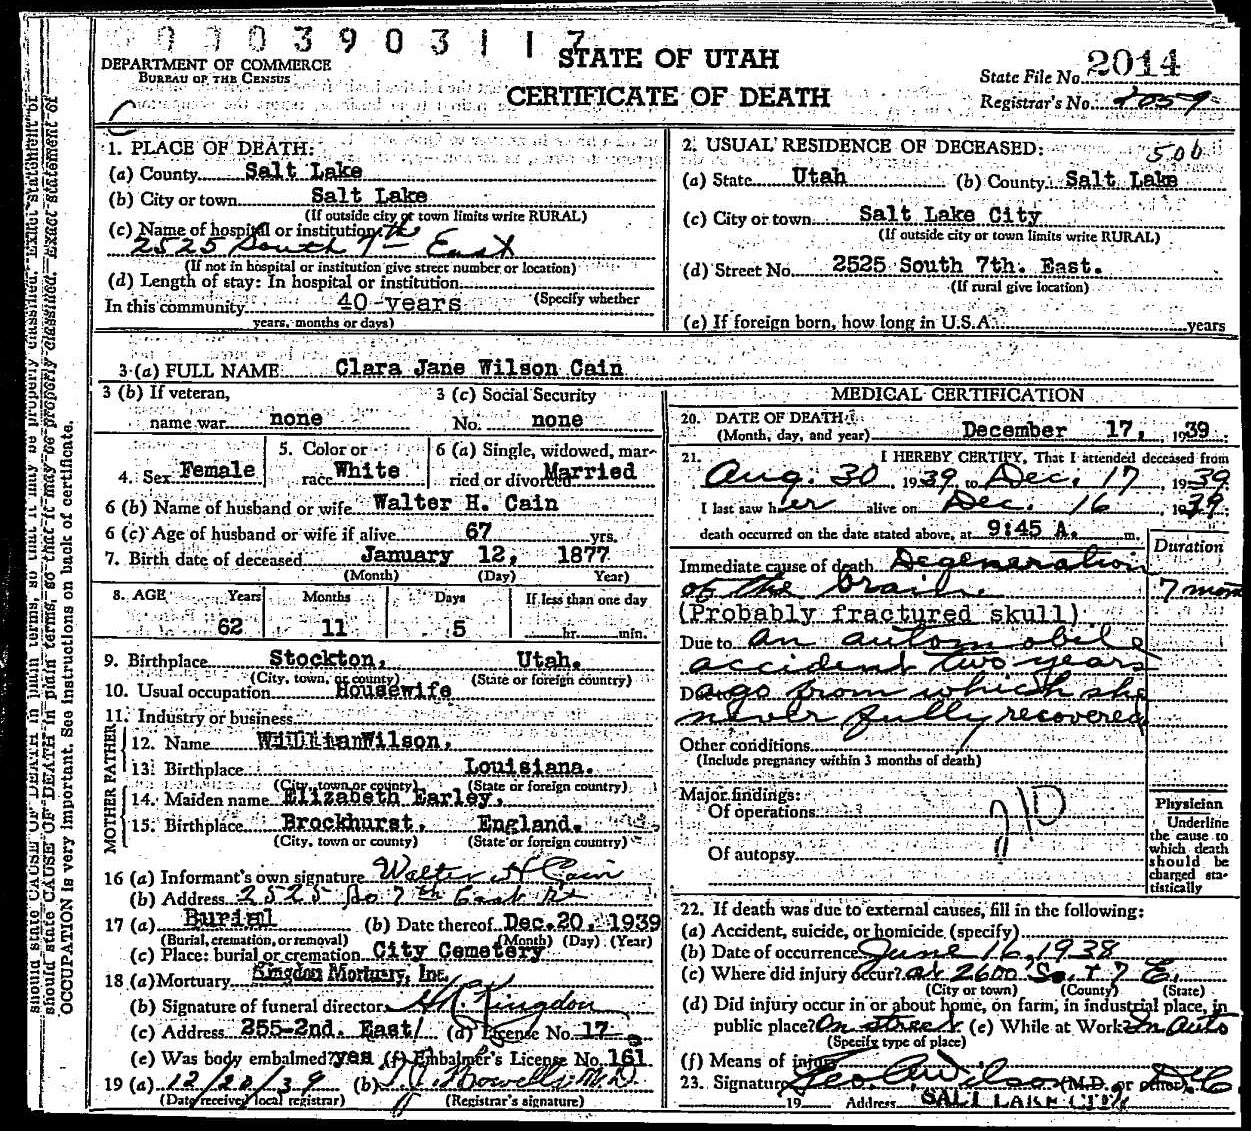 0003903117
STATE OF UTAH
CERTIFICATE OF DEATH
DEPARTMENT OF COMMERCE
BUREAU OF THE CENSUS
State File No. 2014
Registrar's No. 2059
1. PLACE OF DEATH:
(a) County Salt Lake
(b) City or town Salt Lake
(If outside city or town limits write RURAL)
(c) Name of hospital or institution:
2525 South 7th East
(If not in hospital or institution give street number or location)
(d) Length of stay: In hospital or institution
(Specify whether
In this community 40-years
years, months or days)
2. USUAL RESIDENCE OF DECEASED: 506
(a) State Utah (b) County Salt Lake
(c) City or town Salt Lake City
(If outside city or town limits write RURAL)
(d) Street No. 2525 South 7th. East.
(If rural give location)
(e) If foreign born, how long in U.S.A. years
3 (a) FULL NAME Clara Jane Wilson Cain
3 (b) If veteran, name war none
3 (c) Social Security No. none
4. Sex Female
5. Color or race White
6 (a) Single, widowed, married or divorced Married
6 (b) Name of husband or wife Walter H. Cain
6 (c) Age of husband or wife if alive 67 yrs.
7. Birth date of deceased January 12, 1877
(Month) (Day) Year)
8. AGE Years Months Days If less than one day
62 11 5 hr. min.
9. Birthplace Stockton, Utah.
(City, town, or county) (State or foreign country)
10. Usual occupation Housewife
11. Industry or business
FATHER
12. Name William Wilson,
13. Birthplace Louisiana.
(City, town or county) (State or foreign country)
MOTHER
14. Maiden name Elizabeth Earley,
15. Birthplace Brockhurst, England.
(City, town or county) (State or foreign country)
16 (a) Informant's own signature Walter H Cain
(b) Address 2525 So 7th East St
17 (a) Burial (b) Date thereof Dec. 20, 1939
(Burial, cremation, or removal) (Month) (Day) (Year)
(c) Place: burial or cremation City Cemetery
18 (a) Mortuary Kingdon Mortuary, Inc.
(b) Signature of funeral director Kingdon
(c) Address 255-2nd. East (d) License No. 17
(e) Was body embalmed? yes (f) Embalmer's License No. 161
19 (a) 12/20/39 (b) M.D.
(Date received local registrar) (Registrar's signature)
MEDICAL CERTIFICATION
20. DATE OF DEATH:
(Month, day, and year) December 17, 1939.
21. I HEREBY CERTIFY, That I attended deceased from
Aug. 30, 1939, to Dec. 17, 1939.
I last saw her alive on Dec. 16, 1939.
death occurred on the date stated above, at 9:45 A. m.
Duration
Immediate cause of death Degeneration
of the brain 7 mon
(Probably fractured skull)
Due to an automobile
accident two years
Due ago from which she
never fully recovered
Other conditions
(Include pregnancy within 3 months of death)
Major findings:
Of operations
Of autopsy
Physician
Underline
the cause to
which death
should be
charged statistically
22. If death was due to external causes, fill in the following:
(a) Accident, suicide, or homicide (specify)
(b) Date of occurrence June 16, 1938
(c) Where did injury occur? at 2600 So. & 7 E.
(City or town) (County) (State)
(d) Did injury occur in or about home, on farm, in industrial place, in
public place? On street (e) While at Work? In Auto
(Specify type of place)
(f) Means of injury
23. Signature Geo. A. Wilson (M.D. or other) D.C.
19 Address SALT LAKE CITY
should state CAUSE OF DEATH in plain terms, so that it may be properly classified. Exact statement of
OCCUPATION is very important. See instructions on back of certificate.